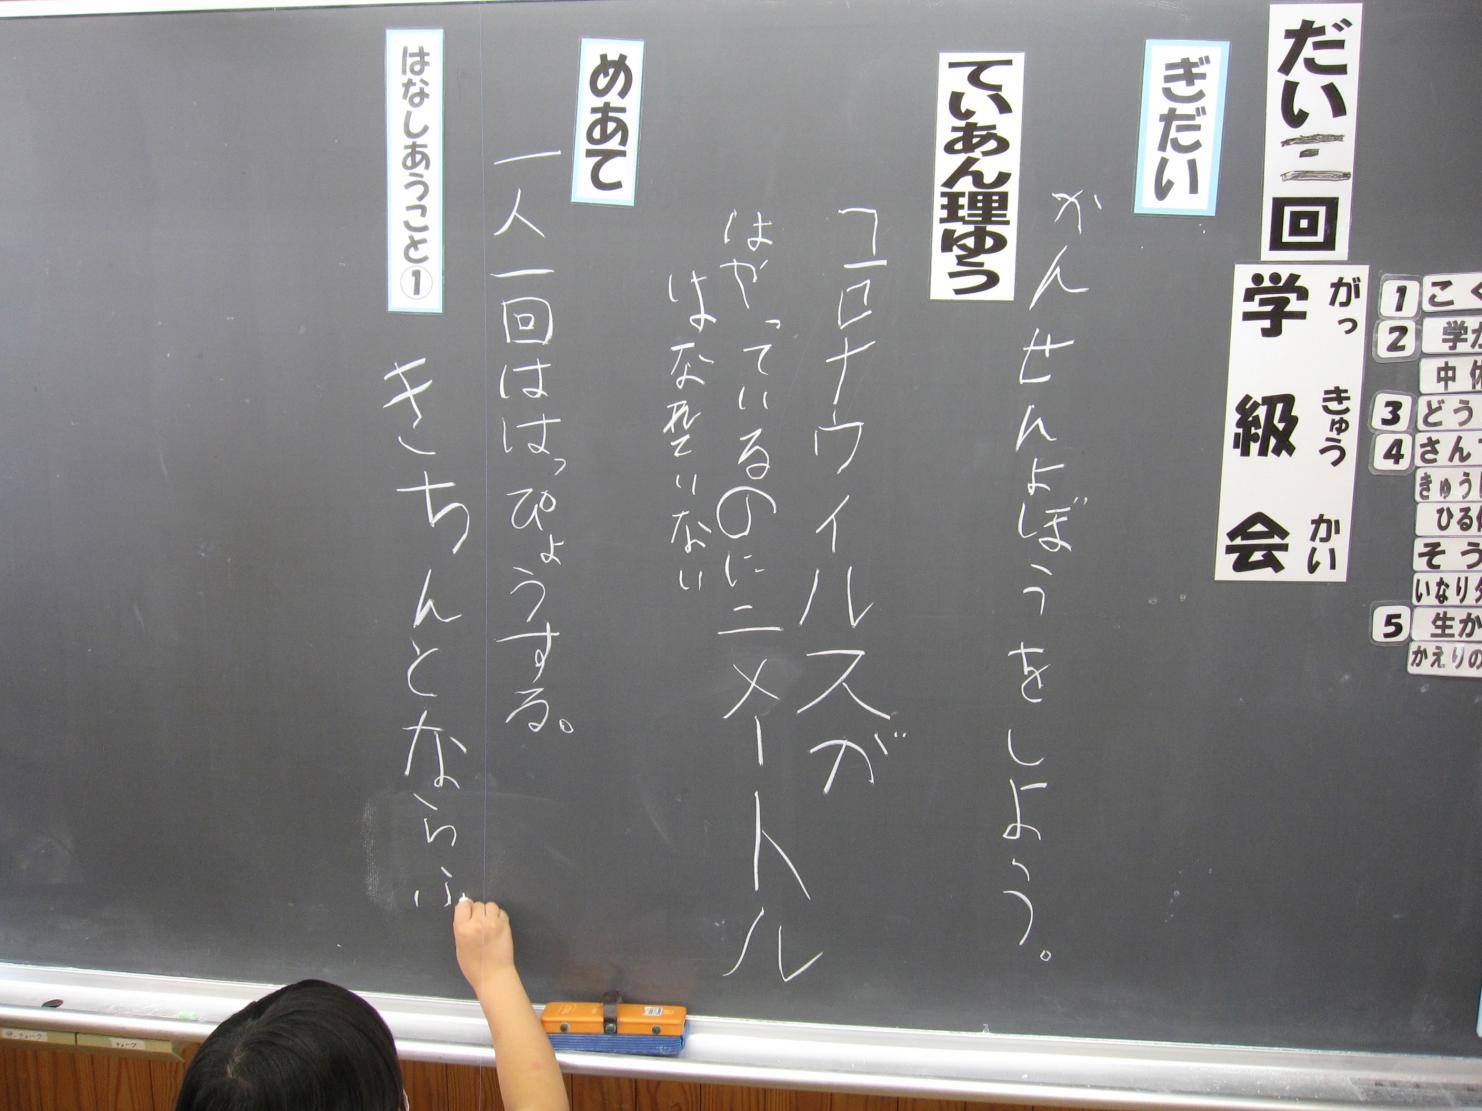 だい二回
学級会
がっ きゅう かい
ぎだい
かんせんよぼうをしよう。
ていあん理ゆう
コロナウイルスが
はやっているのに二メートル
はなれていない
めあて
一人一回ははっぴょうする。
はなしあうこと①
きちんとならぶ
1 こく
2 学
中休
3 どう
4 さん
きゅう
ひる休
そう
いなりタ
5 生か
かえりの